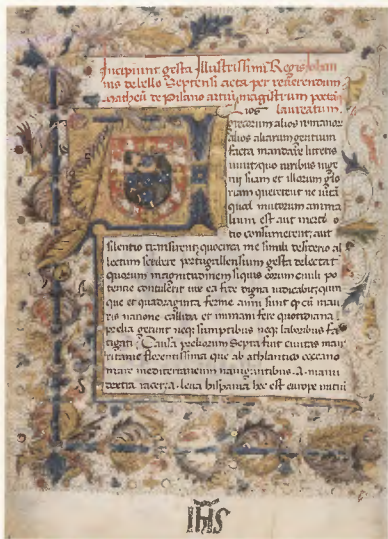 Incipiunt gesta Illustrissimi Regis Johan
nis de bello Septensi acta per reverendum
matheũ de pisano artiũ magistrum poetã
laureatum.
grecorum alios romanor
alios aliarum gentium
facta mandare litteris
iuvit, quo viribus inge
nij suam et illorum glo
riam quererent ne vitã
quod mutorum anima
lium est aut inerti o
tio consumerent, aut
silentio transirent, me simili desiderio al
lectum scribere portugallensium gesta delectat
quorum magnitudinem siquis eorum
ex ea fide digna iudicabit, quin
que et quadraginta ferme anni sunt cũ mau
ris natione callida et immani fere quotidiana
prelia gerunt neqʒ sumptibus neqʒ laboribus fa
tigati. Causa preliorum Septa fuit civitas mau
ritanie florentissima que ab athlantico occeano
mare mediterraneum navigantibus. A. manu
dextra iacet. a. leva hispania hec est europe initiũ
IHS